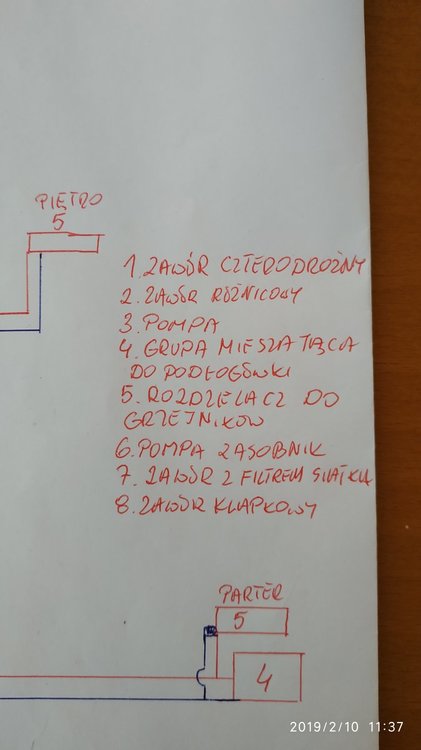 PIĘTRO
5
1. ZAWÓR CZTERODROŻNY
2. ZAWÓR RÓŻNICOWY
3. POMPA
4. GRUPA MIESZAJĄCA
DO PODŁOGÓWKI
5. ROZDZIELACZ DO
GRZEJNIKÓW
6. POMPA ZASOBNIK
7. ZAWÓR Z FILTREM SIATKĄ
8. ZAWÓR KLAPKOWY
PARTER
5
4
2019/2/10 11:37